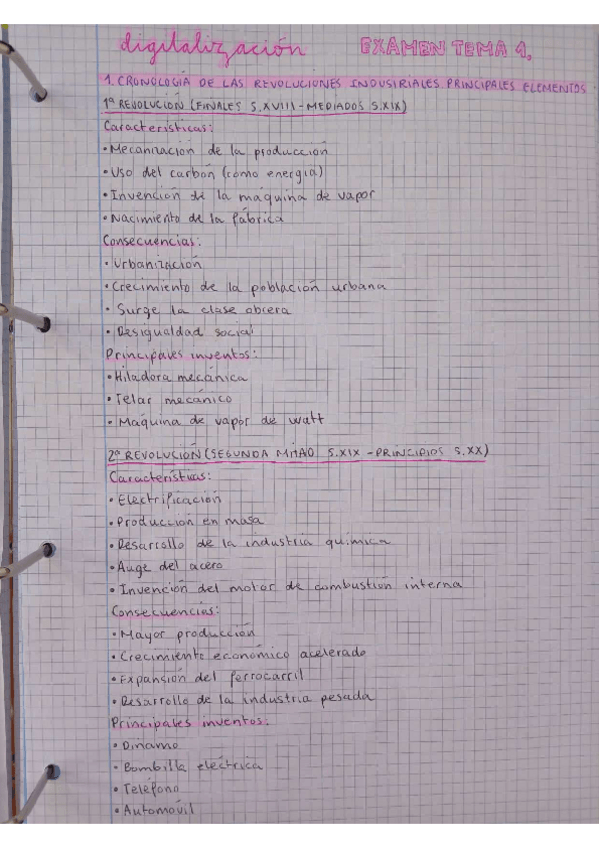 digitalización EXAMEN TEMA 1.
1. CRONOLOGÍA DE LAS REVOLUCIONES INDUSTRIALES. PRINCIPALES ELEMENTOS
1º REVOLUCIÓN (FINALES S.XVIII - MEDIADOS S.XIX)
Características:
• Mecanización de la producción
• Uso del carbón (como energía)
• Invención de la máquina de vapor
• Nacimiento de la fábrica
Consecuencias:
• Urbanización
• Crecimiento de la población urbana
• Surge la clase obrera
• Desigualdad social
Principales inventos:
• Hiladora mecánica
• Telar mecánico
• Máquina de vapor de Watt
2º REVOLUCIÓN (SEGUNDA MITAD S.XIX - PRINCIPIOS S.XX)
Características:
• Electrificación
• Producción en masa
• Desarrollo de la industria química
• Auge del acero
• Invención del motor de combustión interna
Consecuencias:
• Mayor producción
• Crecimiento económico acelerado
• Expansión del ferrocarril
• Desarrollo de la industria pesada
Principales inventos:
• Dinamo
• Bombilla eléctrica
• Teléfono
• Automóvil